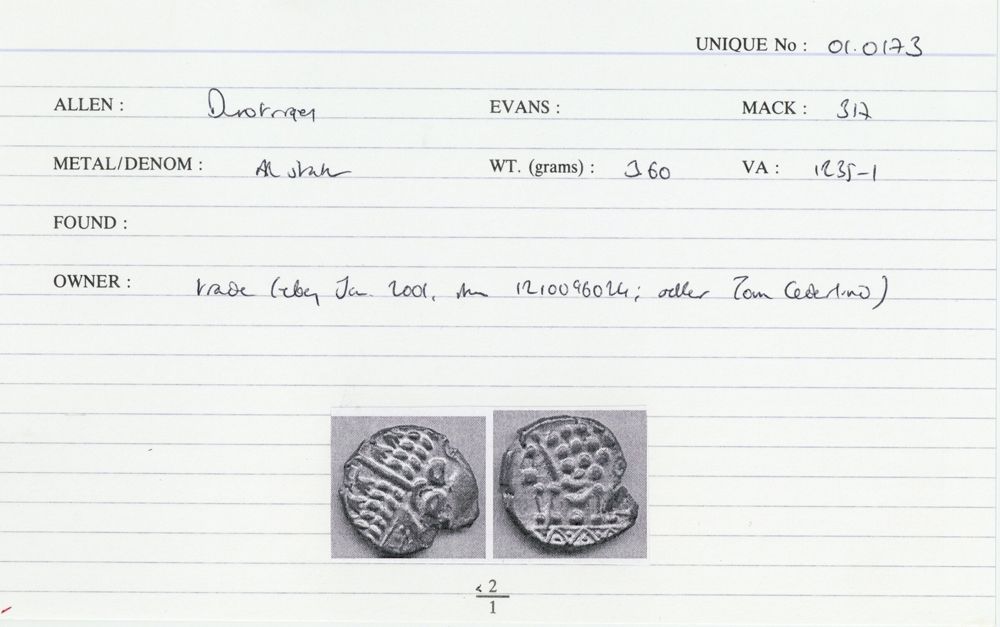 UNIQUE No : 01.0173
ALLEN : Durotriges EVANS : MACK : 317
METAL/DENOM : AR stater WT. (grams) : 3.60 VA : 1235-1
FOUND :
OWNER : trade (eBay Jan. 2001, item 1210096024; seller Tom Cederlind)
< 2
1